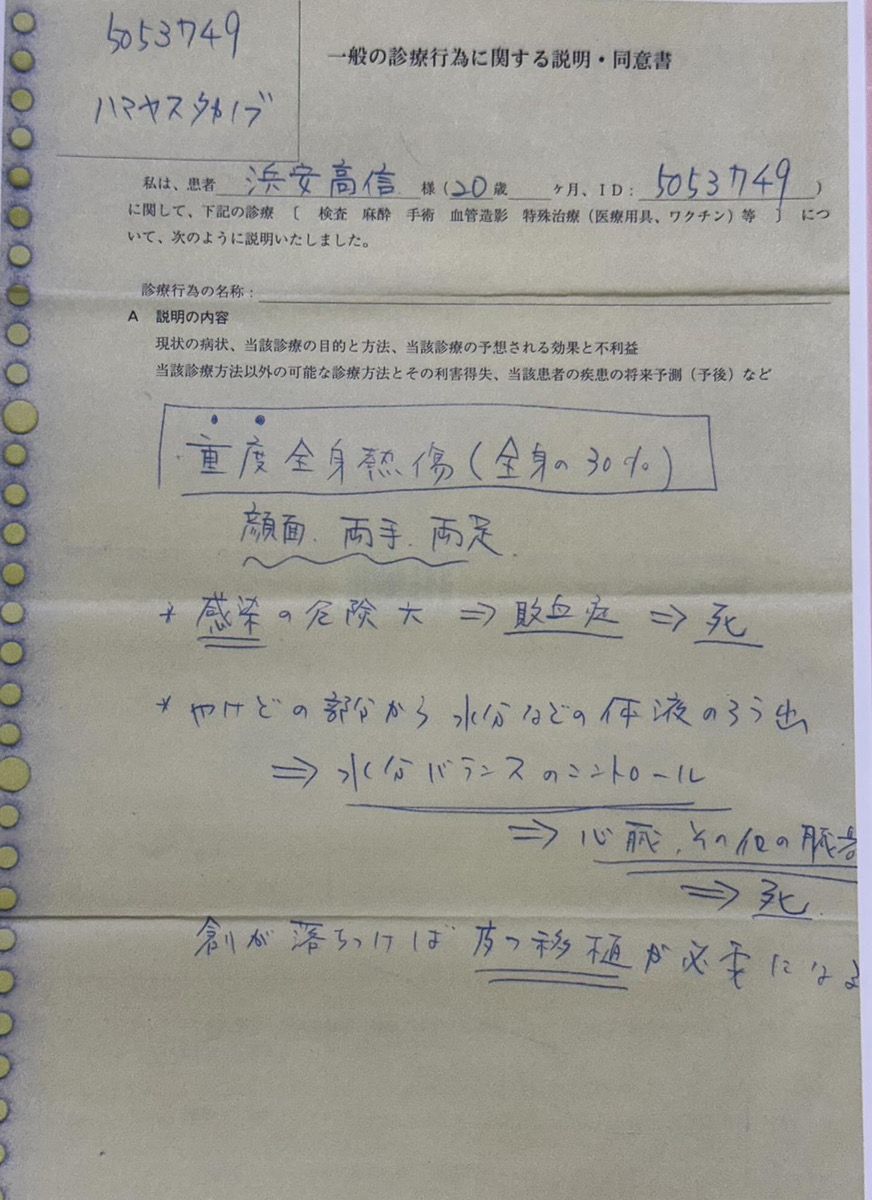 5053749
ハマヤスタカノブ
一般の診療行為に関する説明・同意書
私は、患者 浜安高信 様（20歳 ヶ月、ID： 5053749 ）
に関して、下記の診療〔 検査 麻酔 手術 血管造影 特殊治療（医療用具、ワクチン）等 〕につ
いて、次のように説明いたしました。
診療行為の名称：
A 説明の内容
現状の病状、当該診療の目的と方法、当該診療の予想される効果と不利益
当該診療方法以外の可能な診療方法とその利害得失、当該患者の疾患の将来予測（予後）など
重度全身熱傷（全身の30％）
顔面、両手、両足
* 感染の危険大 ⇒ 敗血症 ⇒ 死
* やけどの部分から水分などの体液のろう出
⇒ 水分バランスのコントロール
⇒ 心臓、その他の臓器
⇒ 死
創が落ちつけば皮フ移植が必要になる